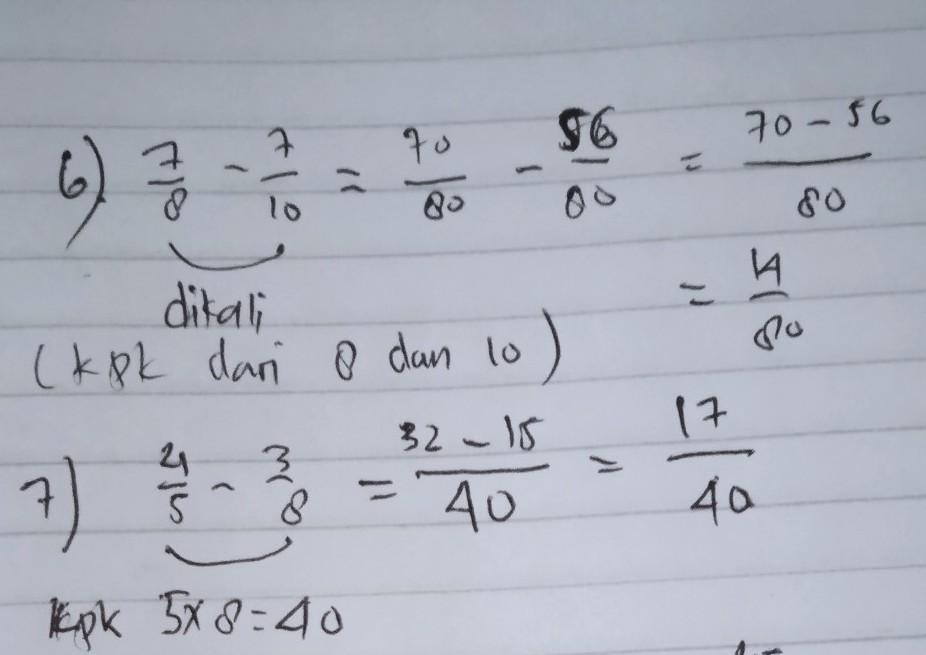 6) 7/8 - 7/10 = 70/80 - 56/80 = (70 - 56)/80
= 14/80
dikali
(kpk dari 8 dan 10)
7) 4/5 - 3/8 = (32 - 15)/40 = 17/40
kpk 5x8=40